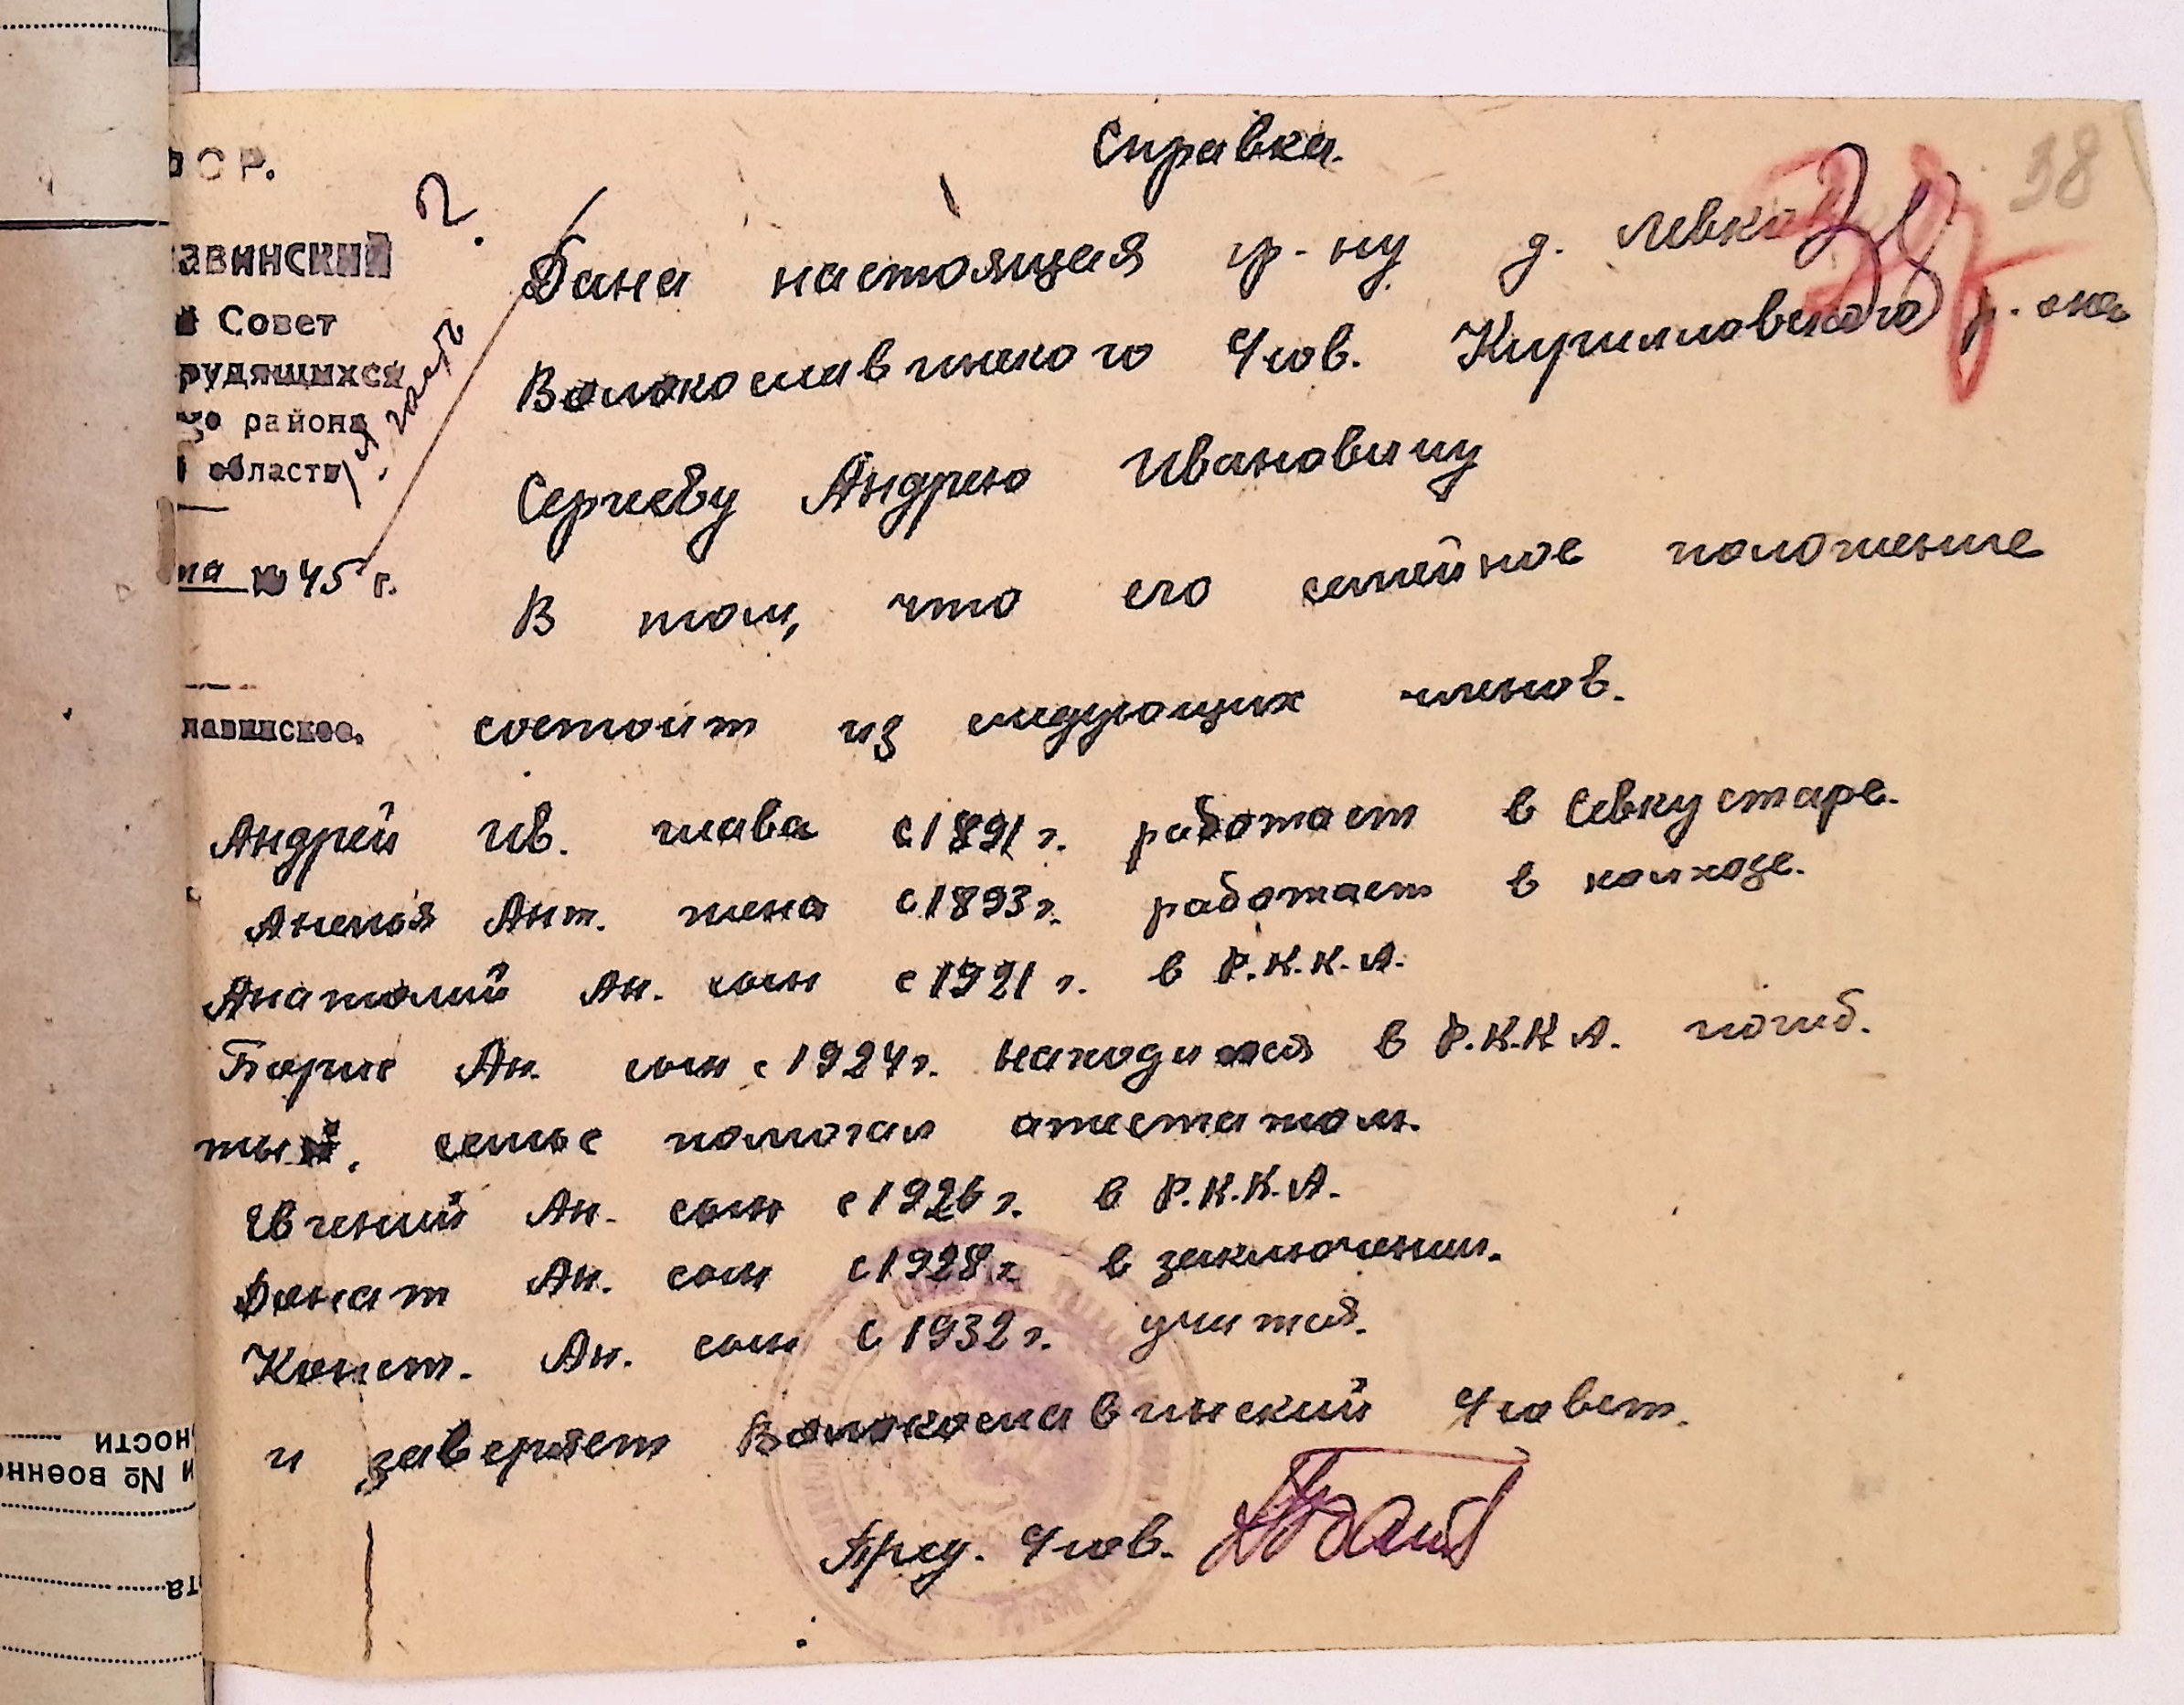 Справка.
38
ФСР.
авинский
й Совет
рудящихся
го района
области
та 1945 г.
лавинское.
Дана настоящая гр-ну д. Левково
Волокославинского Ч/сов. Кирилловского р-она
Сергееву Андрею Ивановичу
В том, что его семейное положение
состоит из следующих членов.
Андрей Ив. глава с 1891 г. работает в Севкустаре.
Анелья Ант. жена с 1893 г. работает в колхозе.
Анатолий Ан. сын с 1921 г. в Р.К.К.А.
Борис Ан. сын с 1924 г. находился в Р.К.К.А. погиб.
семье помогал атестатом.
Евгений Ан. сын с 1926 г. в Р.К.К.А.
Донат Ан. сын с 1928 г. в заключении.
Конст. Ан. сын с 1932 г. учится.
и заверяет Волокославинский Ч/совет.
Пред. Ч/сов.
ности
и № военно
та